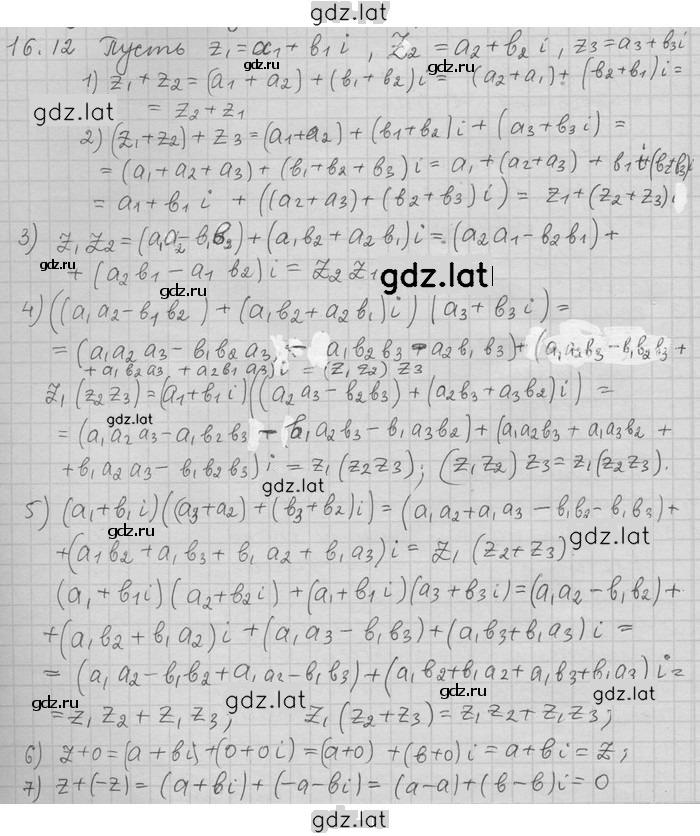 gdz.lat
16.12 Пусть z₁=a₁+b₁i, z₂=a₂+b₂i, z₃=a₃+b₃i
1) z₁+z₂=(a₁+a₂)+(b₁+b₂)i= (a₂+a₁)+(b₂+b₁)i=
gdz.lat = z₂+z₁ gdz.lat
2) (z₁+z₂)+z₃=(a₁+a₂)+(b₁+b₂)i+(a₃+b₃i)=
=(a₁+a₂+a₃)+(b₁+b₂+b₃)i=a₁+(a₂+a₃)+b₁i+(b₂+b₃)i
=a₁+b₁i+((a₂+a₃)+(b₂+b₃)i)= z₁+(z₂+z₃);
3) z₁z₂=(a₁a₂-b₁b₃)+(a₁b₂+a₂b₁)i=(a₂a₁-b₂b₁)+
+(a₂b₁-a₁b₂)i=z₂z₁ gdz.lat
4) ((a₁a₂-b₁b₂)+(a₁b₂+a₂b₁)i)(a₃+b₃i)=
=(a₁a₂a₃-b₁b₂a₃ - a₁b₂b₃-a₂b₁b₃)+(a₁a₂b₃-b₁b₂b₃+
+a₁b₂a₃+a₂b₁a₃)i=(z₁z₂)z₃
z₁(z₂z₃)=(a₁+b₁i)((a₂a₃-b₂b₃)+(a₂b₃+a₃b₂)i)=
gdz.lat
=(a₁a₂a₃-a₁b₂b₃-b₁a₂b₃-b₁a₃b₂)+(a₁a₂b₃+a₁a₃b₂+
+b₁a₂a₃-b₁b₂b₃)i=z₁(z₂z₃); (z₁z₂)z₃=z₁(z₂z₃).
gdz.lat
5) (a₁+b₁i)((a₃+a₂)+(b₃+b₂)i)=(a₁a₂+a₁a₃-b₁b₂-b₁b₃)+
gdz.lat
+(a₁b₂+a₁b₃+b₁a₂+b₁a₃)i=z₁(z₂+z₃) gdz.lat
(a₁+b₁i)(a₂+b₂i)+(a₁+b₁i)(a₃+b₃i)=(a₁a₂-b₁b₂)+
+(a₁b₂+b₁a₂)i+(a₁a₃-b₁b₃)+(a₁b₃+b₁a₃)i=
=(a₁a₂-b₁b₂+a₁a₂-b₁b₃)+(a₁b₂+b₁a₂+a₁b₃+b₁a₃)i=
gdz.lat gdz.lat
=z₁z₂+z₁z₃; z₁(z₂+z₃)=z₁z₂+z₁z₃;
6) z+0=(a+bi)+(0+0i)=(a+0)+(b+0)i=a+bi=z;
7) z+(-z)=(a+bi)+(-a-bi)=(a-a)+(b-b)i=0
gdz.lat